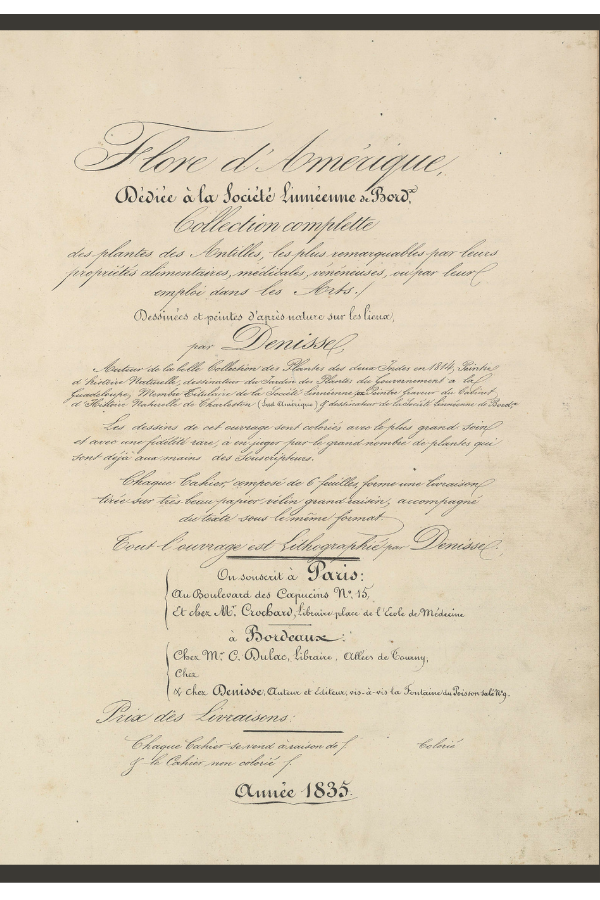 Flore d'Amérique,
Dédiée à la Société Linnéenne de Bord.x
Collection complette
des plantes des Antilles, les plus remarquables par leurs
propriétés alimentaires, médicales, vénéneuses, ou par leur
emploi dans les Arts.
Dessinées et peintes d'après nature sur les lieux,
par Denisse,
Auteur de la belle Collection des Plantes des deux Indes en 1814, Peintre
d'histoire Naturelle, dessinateur du Jardin des Plantes du Gouvernement à la
Guadeloupe, Membre Titulaire de la Société Linnéenne Peintre graveur du Cabinet
d'Histoire Naturelle de Charleston & dessinateur de la Société Linnéenne de Bord.x
Les dessins de cet ouvrage sont coloriés avec le plus grand soin
et avec une fidélité rare, à en juger par le grand nombre de plantes qui
sont déjà aux mains des Souscripteurs.
Chaque Cahier, composé de 6 feuilles, forme une livraison
tirée sur très beau papier vélin grand raisin, accompagné
du texte sous le même format
Tout l'ouvrage est Lithographié par Denisse.
On souscrit à Paris:
Au Boulevard des Capucins N.o 15,
Et chez M.r Crochard, Libraire place de l'Ecole de Médecine
à Bordeaux:
Chez M.r C. Dulac, Libraire, Allées de Tourny,
Chez
& chez Denisse, Auteur et Editeur, vis-à-vis la Fontaine du Poisson salé N.o 9.
Prix des Livraisons:
Chaque Cahier se vend à raison de f. Colorié
& le Cahier non colorié f.
Année 1835.